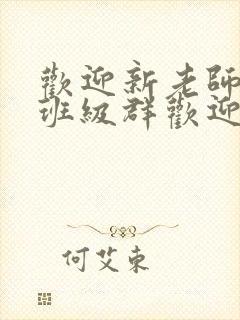 歡迎新老師
班級群歡迎
何艾東